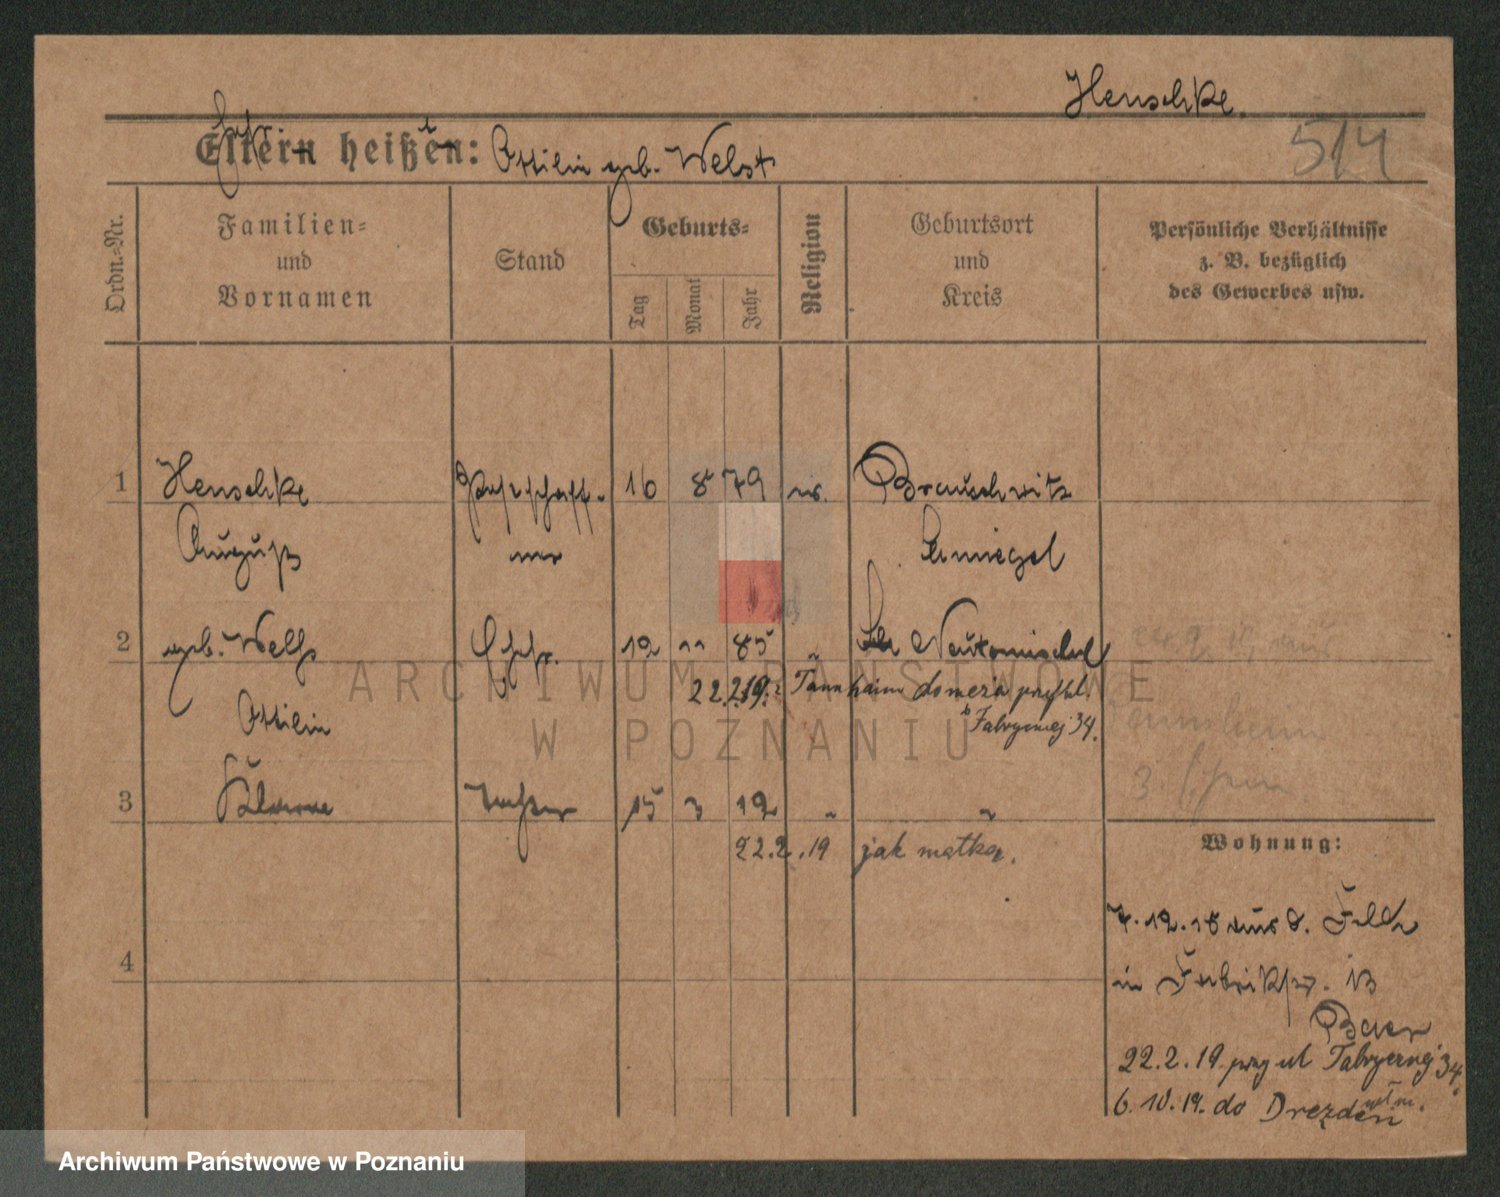 Henschke.
514
Eltern heißen: Ottilie geb. Welst
Ordn.-Nr.
Familien-
und
Vornamen
Stand
Geburts-
Tag
Monat
Jahr
Religion
Geburtsort
und
Kreis
Persönliche Verhältnisse
z. B. bezüglich
des Gewerbes usw.
1 Henschke Postschaff- 16 8 79 ev.
August ner Schmiegel
2 geb. Ehefr. 12 11 85 " Neutomischel
22.2.19. Tannheim do
Ottilie Fabrycznej 34.
3 Tochter 15 3 12 " "
22.2.19 jak matka.
4
Wohnung:
7.12.18 aus d. Felde
in Fabrikstr. 13
Baer
22.2.19. przy ul Fabrycznej 34.
6.10.19. do Drezden
ARCHIWUM PAŃSTWOWE
W POZNANIU
Archiwum Państwowe w Poznaniu